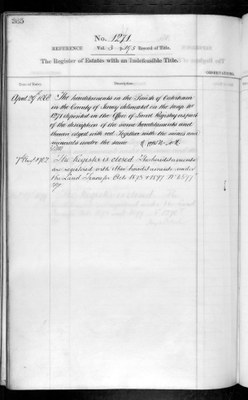 365
No. 1271
REFERENCE Vol. 3 p. 365 Record of Title.
The Register of Estates with an Indefeasible Title.
Date of Entry. Description. OBSERVATIONS.
April 29th 1868 The hereditaments in the Parish of
in the County of Surrey delineated on the Map No
1271 deposited in the Office of Land Registry as part
of the description of the same hereditaments and
thereon edged with red Together with the mines and
minerals under the same
The Register is closed The hereditaments
are registered with other hereditaments under
the Land Transfer Acts 1875 & 1897